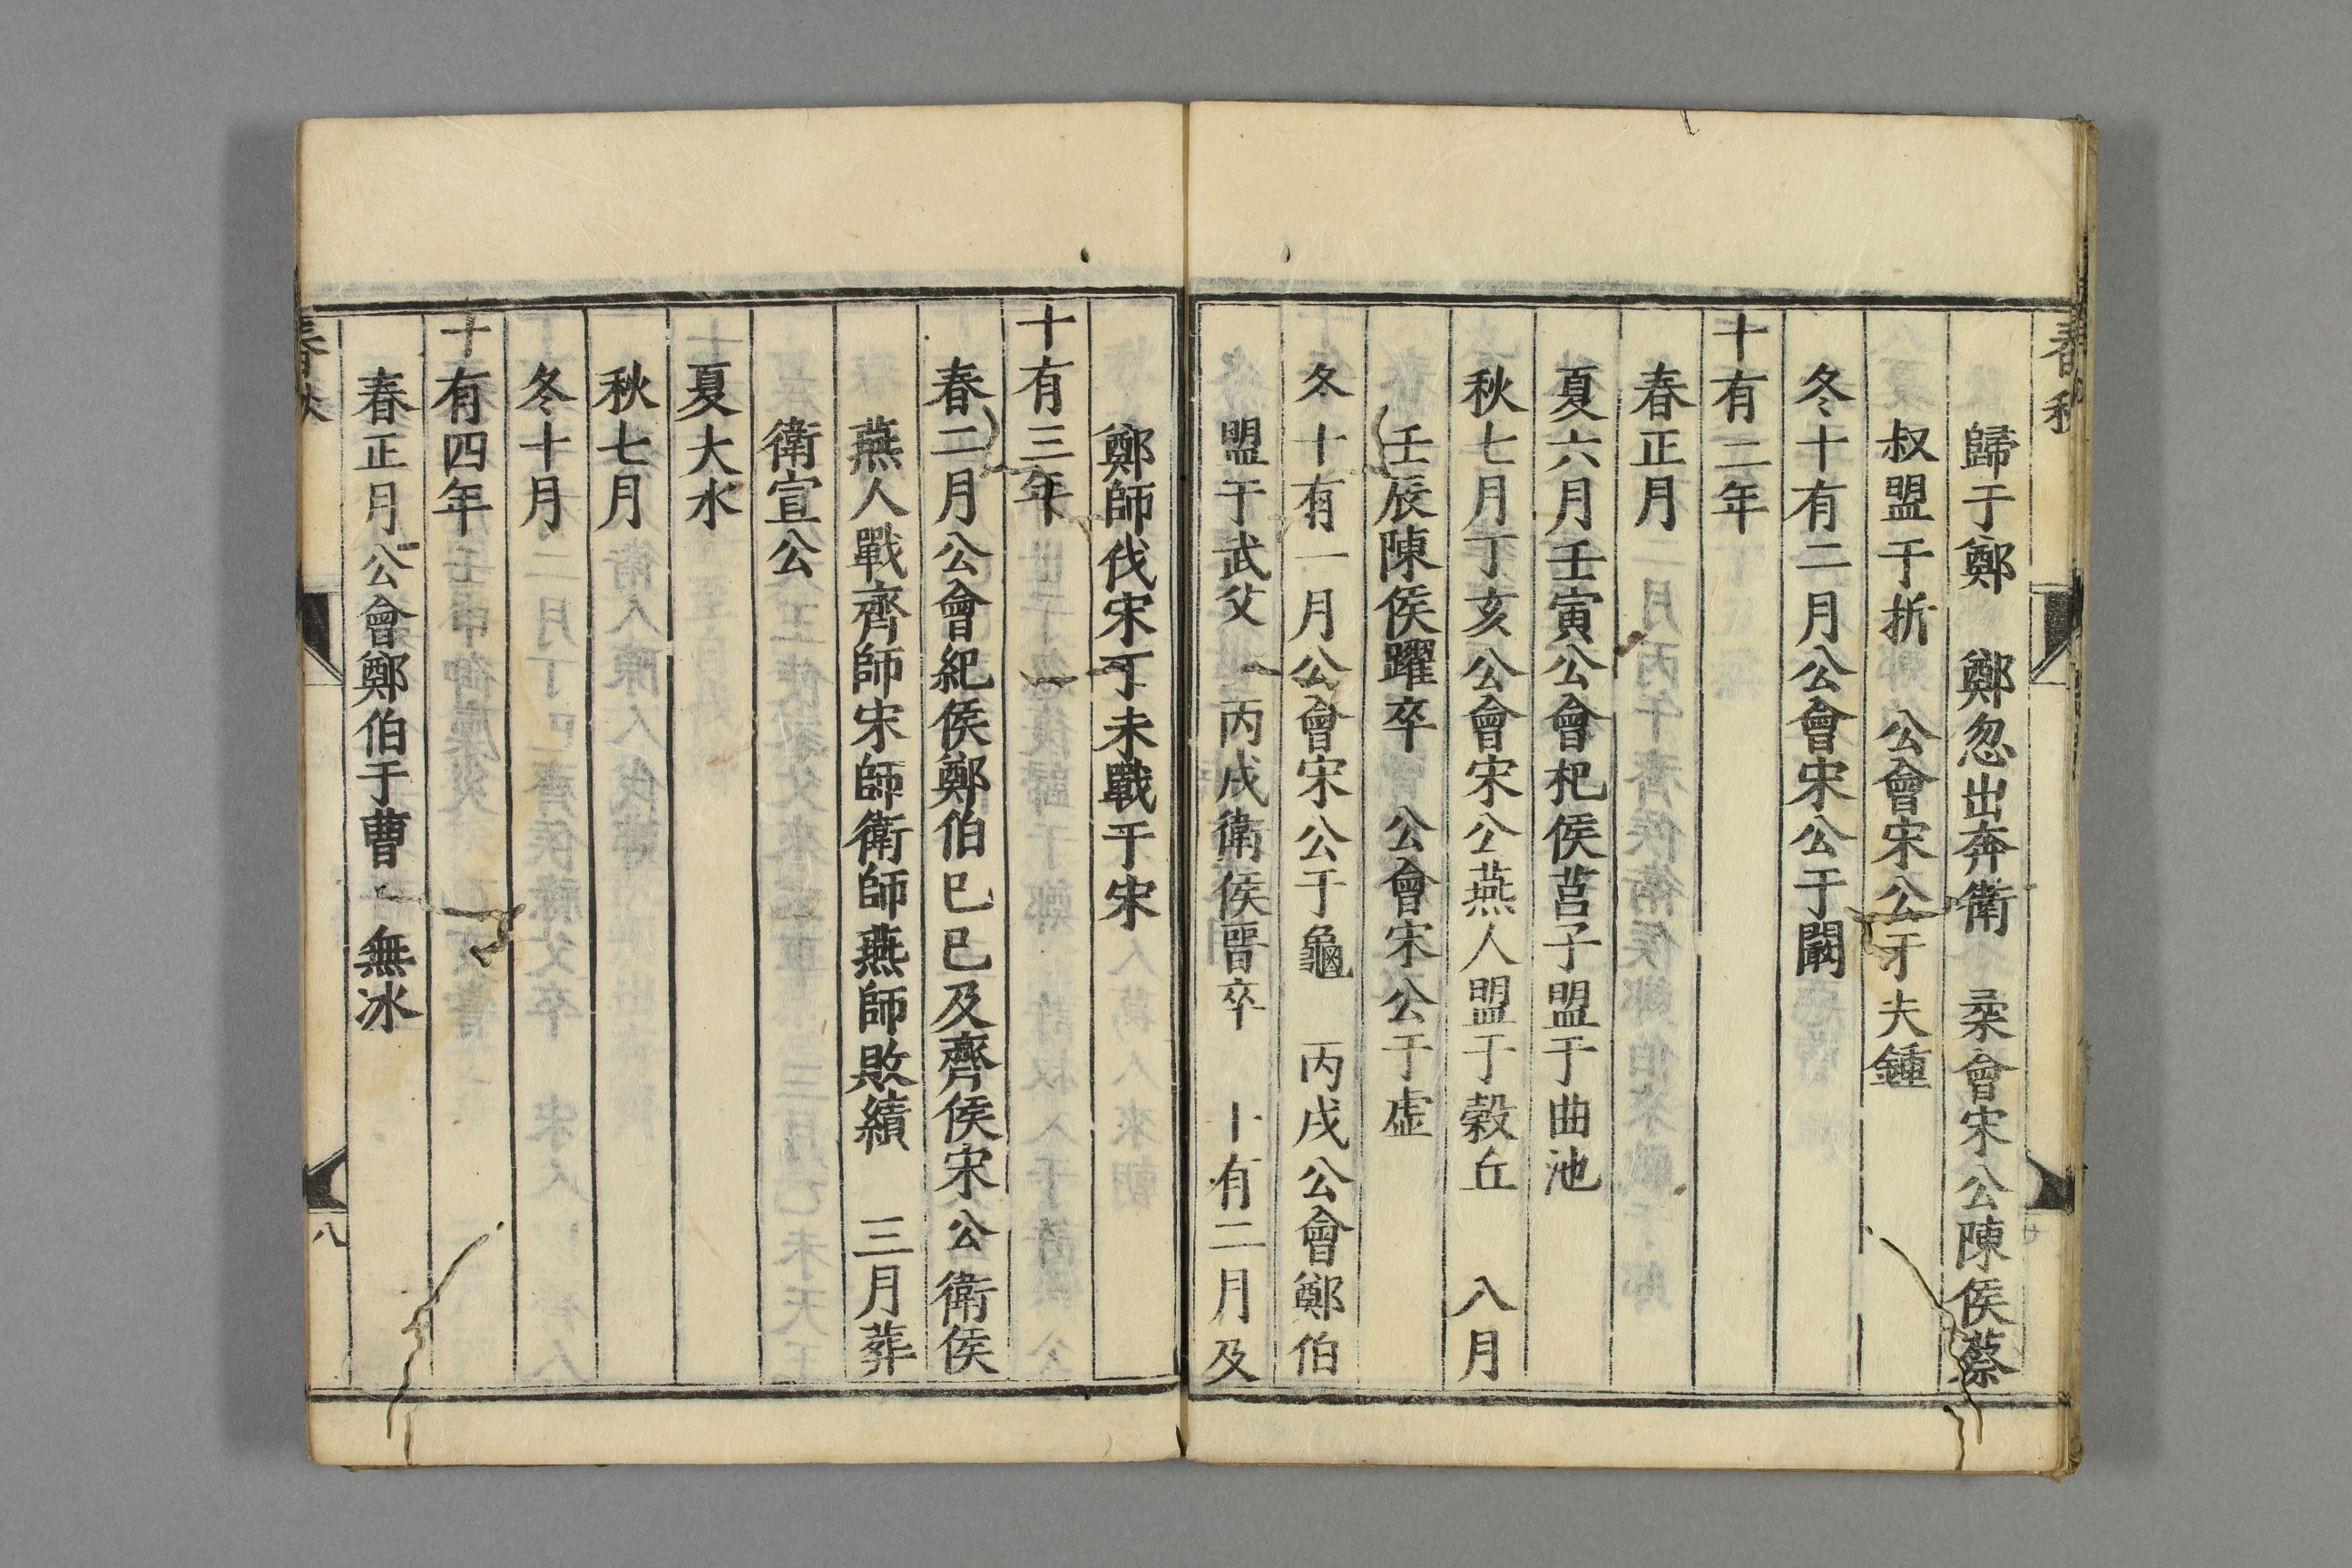 春秋
歸于鄭　鄭忽出奔衛　柔會宋公陳侯蔡
叔盟于折　公會宋公于夫鍾
冬十有二月公會宋公于闞
十有二年
春正月
夏六月壬寅公會杞侯莒子盟于曲池
秋七月丁亥公會宋公燕人盟于穀丘　八月
壬辰陳侯躍卒　公會宋公于虛
冬十有一月公會宋公于龜　丙戌公會鄭伯
盟于武父　丙戌衛侯晉卒　十有二月及
鄭師伐宋丁未戰于宋
十有三年
春二月公會紀侯鄭伯己巳及齊侯宋公衛侯
燕人戰齊師宋師衛師燕師敗績　三月葬
衛宣公
夏大水
秋七月
冬十月
十有四年
春正月公會鄭伯于曹　無冰
春秋
八